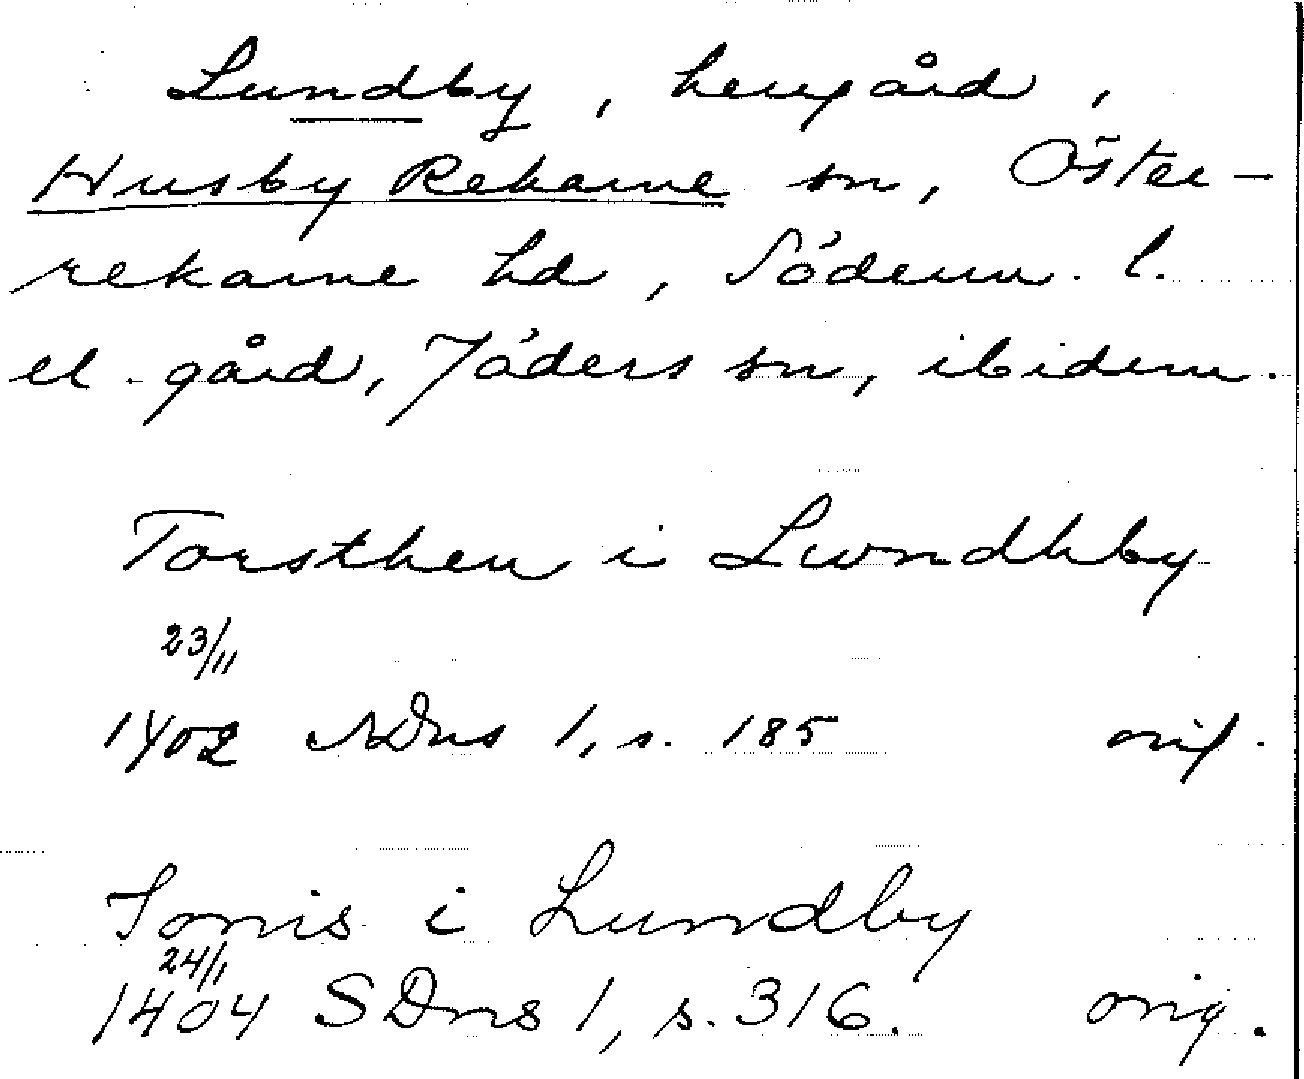 Lundby, herrgård,
Husby Rekarne sn, Öster-
rekarne hd, Söderm. l.
el. gård, Jäders sn, ibidem.
Torsthen i Lwndhby
23/11
1402 SDns 1, s. 185 orig.
i Lundby
24/1
1404 SDns 1, s. 316. orig.